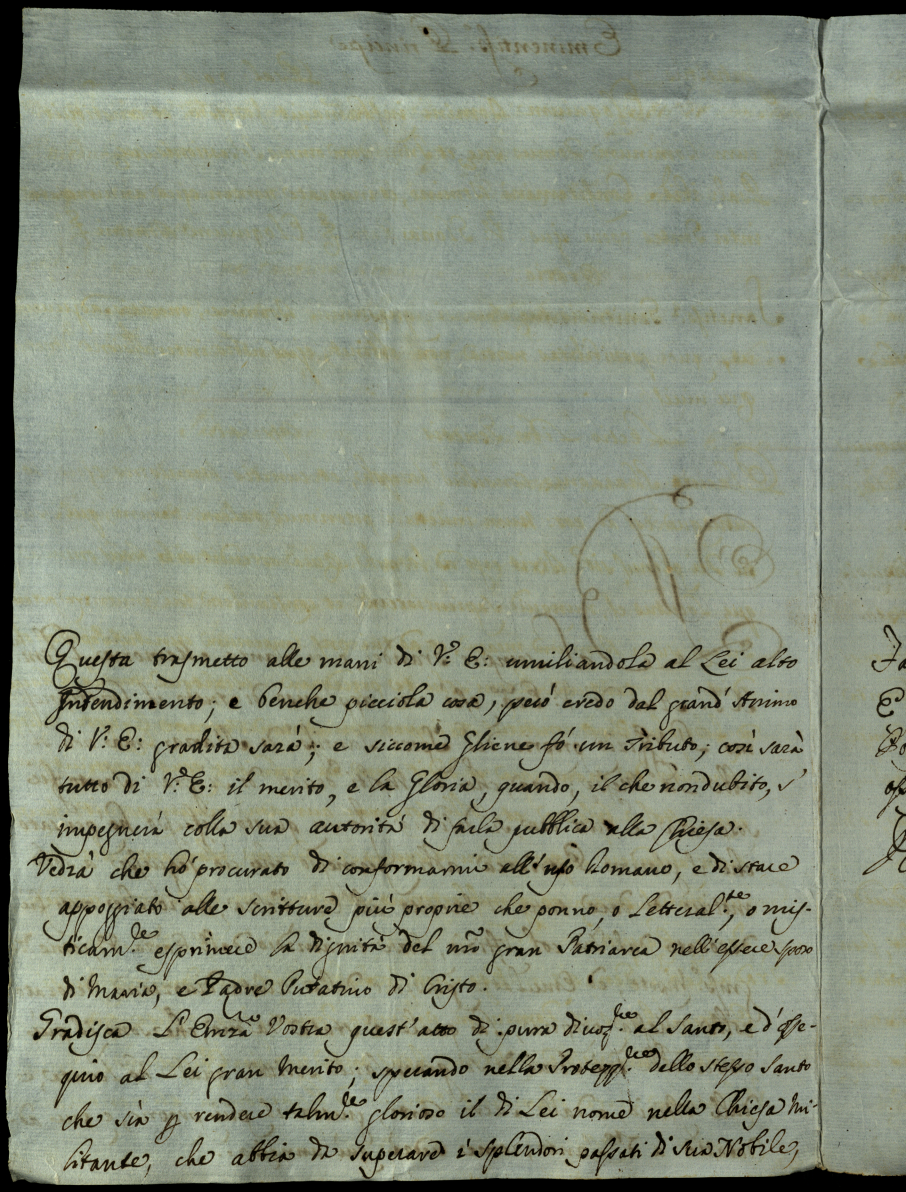 Questa trasmetto alle mani di V.ª E: umiliandola al Lei alto
Intendimento; e benche picciola cosa, peró credo dal grand' Animo
di V.ª E: gradita sará; e siccome Gliene fó un Tributo, così sará
tutto di V.ª E: il merito, e la Gloria, quando, il che non dubito, s'
impegnerá colla sua autoritá di farla pubblica alla Chiesa.
Vedrá che hó procurato di conformarmi all'uso Romano, e di stare
appoggiato alle scritture più proprie che ponno, o Letteral.te, o mis-
ticam.te esprimere la dignitá del nr̃o gran Patriarca nell'essere sposo
di Maria, e Padre Putativo di Cristo.
Gradisca L'Em̃za Vostra quest'atto di pura divoz.ne al Santo, e d'osse-
quio al Lei gran Merito; sperando nella Protezz.ne dello stesso Santo
che sia p rendere talm.te glorioso il di Lei nome nella Chiesa Mi-
litante, che abbia da superare i splendori passati di sua Nobile,